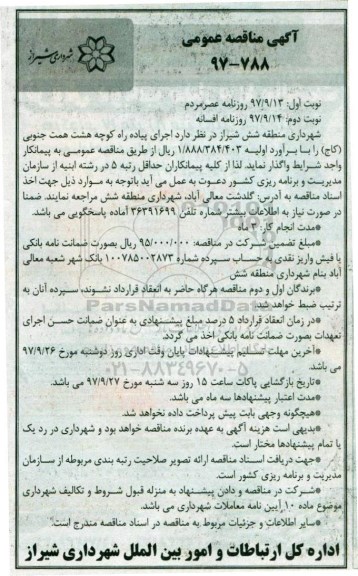 شهرداری شیراز
آگهی مناقصه عمومی
۹۷-۷۸۸
نوبت اول: ۹۷/۹/۱۳ روزنامه عصرمردم
نوبت دوم: ۹۷/۹/۱۴ روزنامه افسانه
شهرداری منطقه شش شیراز در نظر دارد اجرای پیاده راه کوچه هشت همت جنوبی
(کاج) را با برآورد اولیه ۱/۸۸۸/۳۸۴/۴۰۳ ریال از طریق مناقصه عمومی به پیمانکار
واحد شرایط واگذار نماید. لذا از کلیه پیمانکاران حداقل رتبه ۵ در رشته ابنیه از سازمان
مدیریت و برنامه ریزی کشور دعوت به عمل می آید باتوجه به موارد ذیل جهت اخذ
اسناد مناقصه به آدرس: گلدشت معالی آباد، شهرداری منطقه شش مراجعه نمایند. ضمنا
در صورت نیاز به اطلاعات بیشتر شماره تلفن ۳۶۳۹۱۶۹۹ آماده پاسخگویی می باشد.
*مدت انجام کار: ۳ ماه
*مبلغ تضمین شرکت در مناقصه: ۹۵/۰۰۰/۰۰۰ ریال بصورت ضمانت نامه بانکی
یا فیش واریز نقدی به حساب سپرده شماره ۱۰۰۷۸۵۰۰۲۸۷۳ بانک شهر شعبه معالی
آباد بنام شهرداری منطقه شش
*برندگان اول و دوم مناقصه هرگاه حاضر به انعقاد قرارداد نشوند، سپرده آنان به
ترتیب ضبط خواهد شد.
*در زمان انعقاد قرارداد ۵ درصد مبلغ پیشنهادی به عنوان ضمانت حسن اجرای
تعهدات بصورت ضمانت نامه بانکی اخذ می گردد.
*آخرین مهلت تسلیم پیشنهادات پایان وقت اداری روز دوشنبه مورخ ۹۷/۹/۲۶
می باشد.
*تاریخ بازگشایی پاکات ساعت ۱۵ روز سه شنبه مورخ ۹۷/۹/۲۷ می باشد.
*مدت اعتبار پیشنهادها سه ماه می باشد.
*هیچگونه وجهی بابت پیش پرداخت داده نخواهد شد.
*بدیهی است هزینه آگهی به عهده برنده مناقصه خواهد بود و شهرداری در رد یک
یا تمام پیشنهادها مختار است.
*جهت دریافت اسناد مناقصه ارائه تصویر صلاحیت رتبه بندی مربوطه از سازمان
مدیریت و برنامه ریزی کشور است.
*شرکت در مناقصه و دادن پیشنهاد به منزله قبول شروط و تکالیف شهرداری
موضوع ماده ۱۰ آیین نامه معاملات شهرداری می باشد.
*سایر اطلاعات و جزئیات مربوط به مناقصه در اسناد مناقصه مندرج است.
اداره کل ارتباطات و امور بین الملل شهرداری شیراز
ParsNamadData
۰۲۱-۸۸۳۴۹۶۷۰-۵